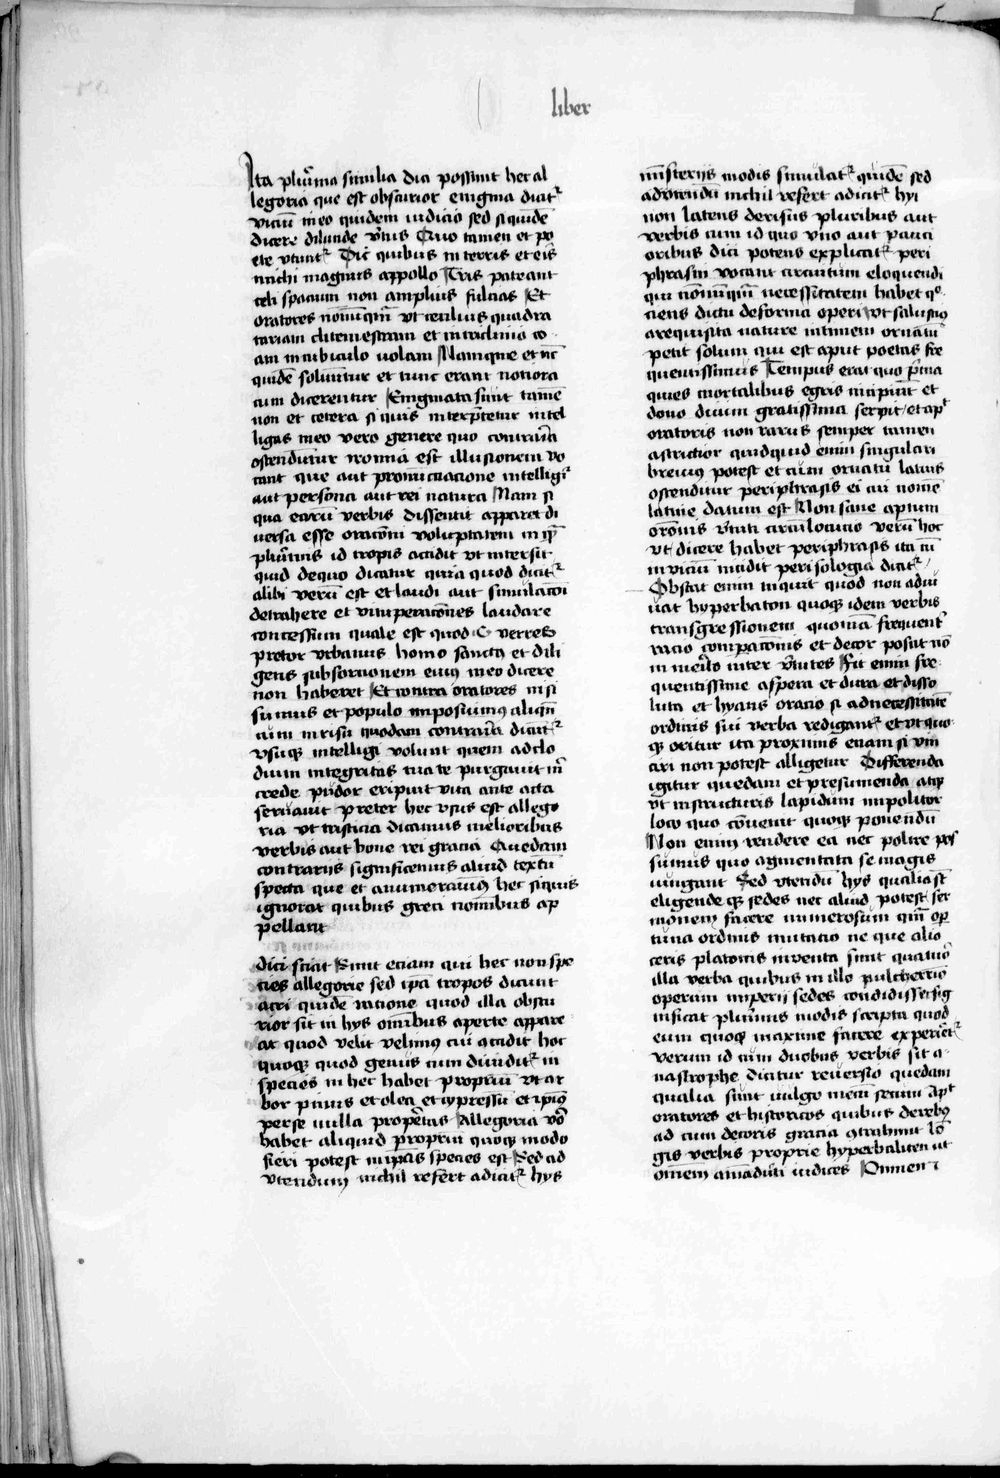 liber
Ita plurima similia dici possunt hec al
legoria que est obscurior enigma dicitur
vicium meo quidem iudicio sed siquidem
dicere dilucide virtus Quo tamen et po
ete utuntur Dic quibus in terris et eris
michi magnus appollo Tris pateant
celi spacium non amplius fulcias Et
oratores nonnumquam ut celius quadra
tariam clitemestram et in triclinio co
am in cubiculo nolam Namque et nunc
quidem soluuntur et tunc erant notiora
cum dicerentur Enigmata sunt tamen
non et cetera si quis interpretetur intel
ligas meo vero genere quo contraria
ostenduntur yronia est illusionem vo
cant que aut pronunciacione intelligitur
aut persona aut rei natura Nam si
qua earum verbis dissentit apparet di
uersa esse oracioni voluptatem in quam
plurimis id tropis accidit ut intersit
quid dequo dicatur quia quod dicitur
alibi verum est et laudi aut simulacioni
detrahere et vituperaciones laudare
concessum quale est quod C verres
pretor urbanus homo sanctus et dili
gens subsortionem eius meo dicere
non haberet Et contra oratores nisi
sumus et populo imposuimus aliquando
cum in risu quodam contraria dicuntur
usuque intelligi volunt quem ad clo
dium integritas tua te purgauit mihi
crede pudor eripuit vita ante acta
seruauit preter hec usus est allego
ria ut tristicia dicamus melioribus
verbis aut bone rei gracia Quedam
contrariis significemus aliud textum
specta que et anumerauimus hec siquis
ignorat quibus greci nominibus ap
pellant
dici sciat Sunt eciam qui hec non spe
cies allegorie sed ipsa tropos dicunt
acri quidem racione quod illa obscu
rior sit in hys omnibus aperte appare
at quod velit velimus cui accidit hoc
quoque quod genus cum diuiditur in
species in hec habet proprium ut ar
bor pinus et olea et cypressus et ipsius
perse nulla proprietas Allegoria vero
habet aliquid proprii quoque modo
fieri potest nisi ipsas species est Sed ad
utendum nichil refert adicitur hys
misteriis modis simulatur quidem sed
ad utendum nichil refert adicitur hyi
non latens derisus pluribus aut
verbis cum id quo uno aut pauci
oribus dici potens explicatur peri
phrasin vocant circuitum eloquendi
qui nonnumquam necessitatem habet quo
ciens dictu deformia operi ut salustius
arequisita nature interim ornatum
petit solum qui est aput poetas fre
quentissimus Tempus erat quo prima
quies mortalibus egris incipiunt et
dono diuum gratissima serpit et aput
oratoris non rarus semper tamen
astrictior quidquid enim singulari
breuius potest et cum ornatu latius
ostenditur periphrasis ei cui nomen
latine datum est Non sane aptum
oracionis virtuti circumlocucio verum hoc
ut dicere habet periphrasis ita cum
in vicium incidit perisologia dicitur
Obstat enim inquit quod non adiu
uat hyperbaton quoque idem verbis
transgressionem quoniam frequenter
racio comparacionis et decor poscit non
in merito inter virtutes Fit enim fre
quentissime aspera et dura et disso
luta et hyans oracio si ad necessitatem
ordinis sui verba redigantur et ut quo
que oritur ita proximis eciam si vin
ciri non potest alligetur Differenda
igitur quedam et presumenda atque
ut instructuris lapidum impolitor
loco quo conuenit quoque ponendum
Non enim rendere ea nec polire pos
sumus quo agmentata se magis
iungant Sed utendum hys qualia sunt
eligende que sedes nec aliud potest ser
monem facere numerosum quam opor
tuna ordinis mutacio ne que alio
ceris platonis inuenta sunt quatuor
illa verba quibus in illo pulcherrimo
operum imperii sedes condidisse sig
nificat plurimis modis scripta quod
eum quoque maxime facere experietur
verum id cum duobus verbis fit a
nastrophe dicitur reuersio quedam
qualia sunt uulgo mecum secum aput
oratores et historicos quibus derebus
ad cum decoris gracia contrahitur lon
gis verbis proprie hyperbaliten ut
omnem animaduerti iudices Omnem